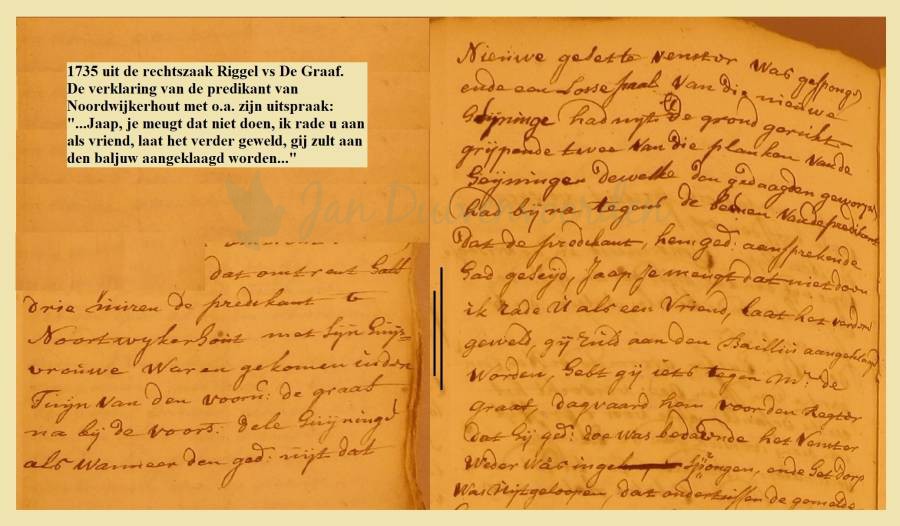 1735 uit de rechtszaak Riggel vs De Graaf.
De verklaring van de predikant van
Noordwijkerhout met o.a. zijn uitspraak:
"...Jaap, je meugt dat niet doen, ik rade u aan
als vriend, laat het verder geweld, gij zult aan
den baljuw aangeklaagd worden..."
dat omtrent half
drie uuren de predikant te
Noortwykerhout met sijn huijs-
vrouwe waren gekomen in den
Tuijn van den voorn: de graaf
na bij de voors: dele
als wanneer den ged: uijt dat
Nieuwe gesette venster was
ende een Losse paal van die nieuwe
had uijt de grond gerukt
grijpende twee van die planken van de
dewelke den gedaagden
had bijna tegens de benen van de predikant
Dat de predikant, hem ged: aansprekende
had geseijd, Jaap Je meugt dat niet doen
ik rade U als een Vriend, laat het verdere
geweld, gij zuld aan den Bailliu
worden, hebt gij iets tegen Mr. de
graaf, dagvaard hem voor den Regter
dat hij ged: doe was het venster
weder was ende het dorp
was uijtgeloopen, dat ondertussen de gemelde
Jan